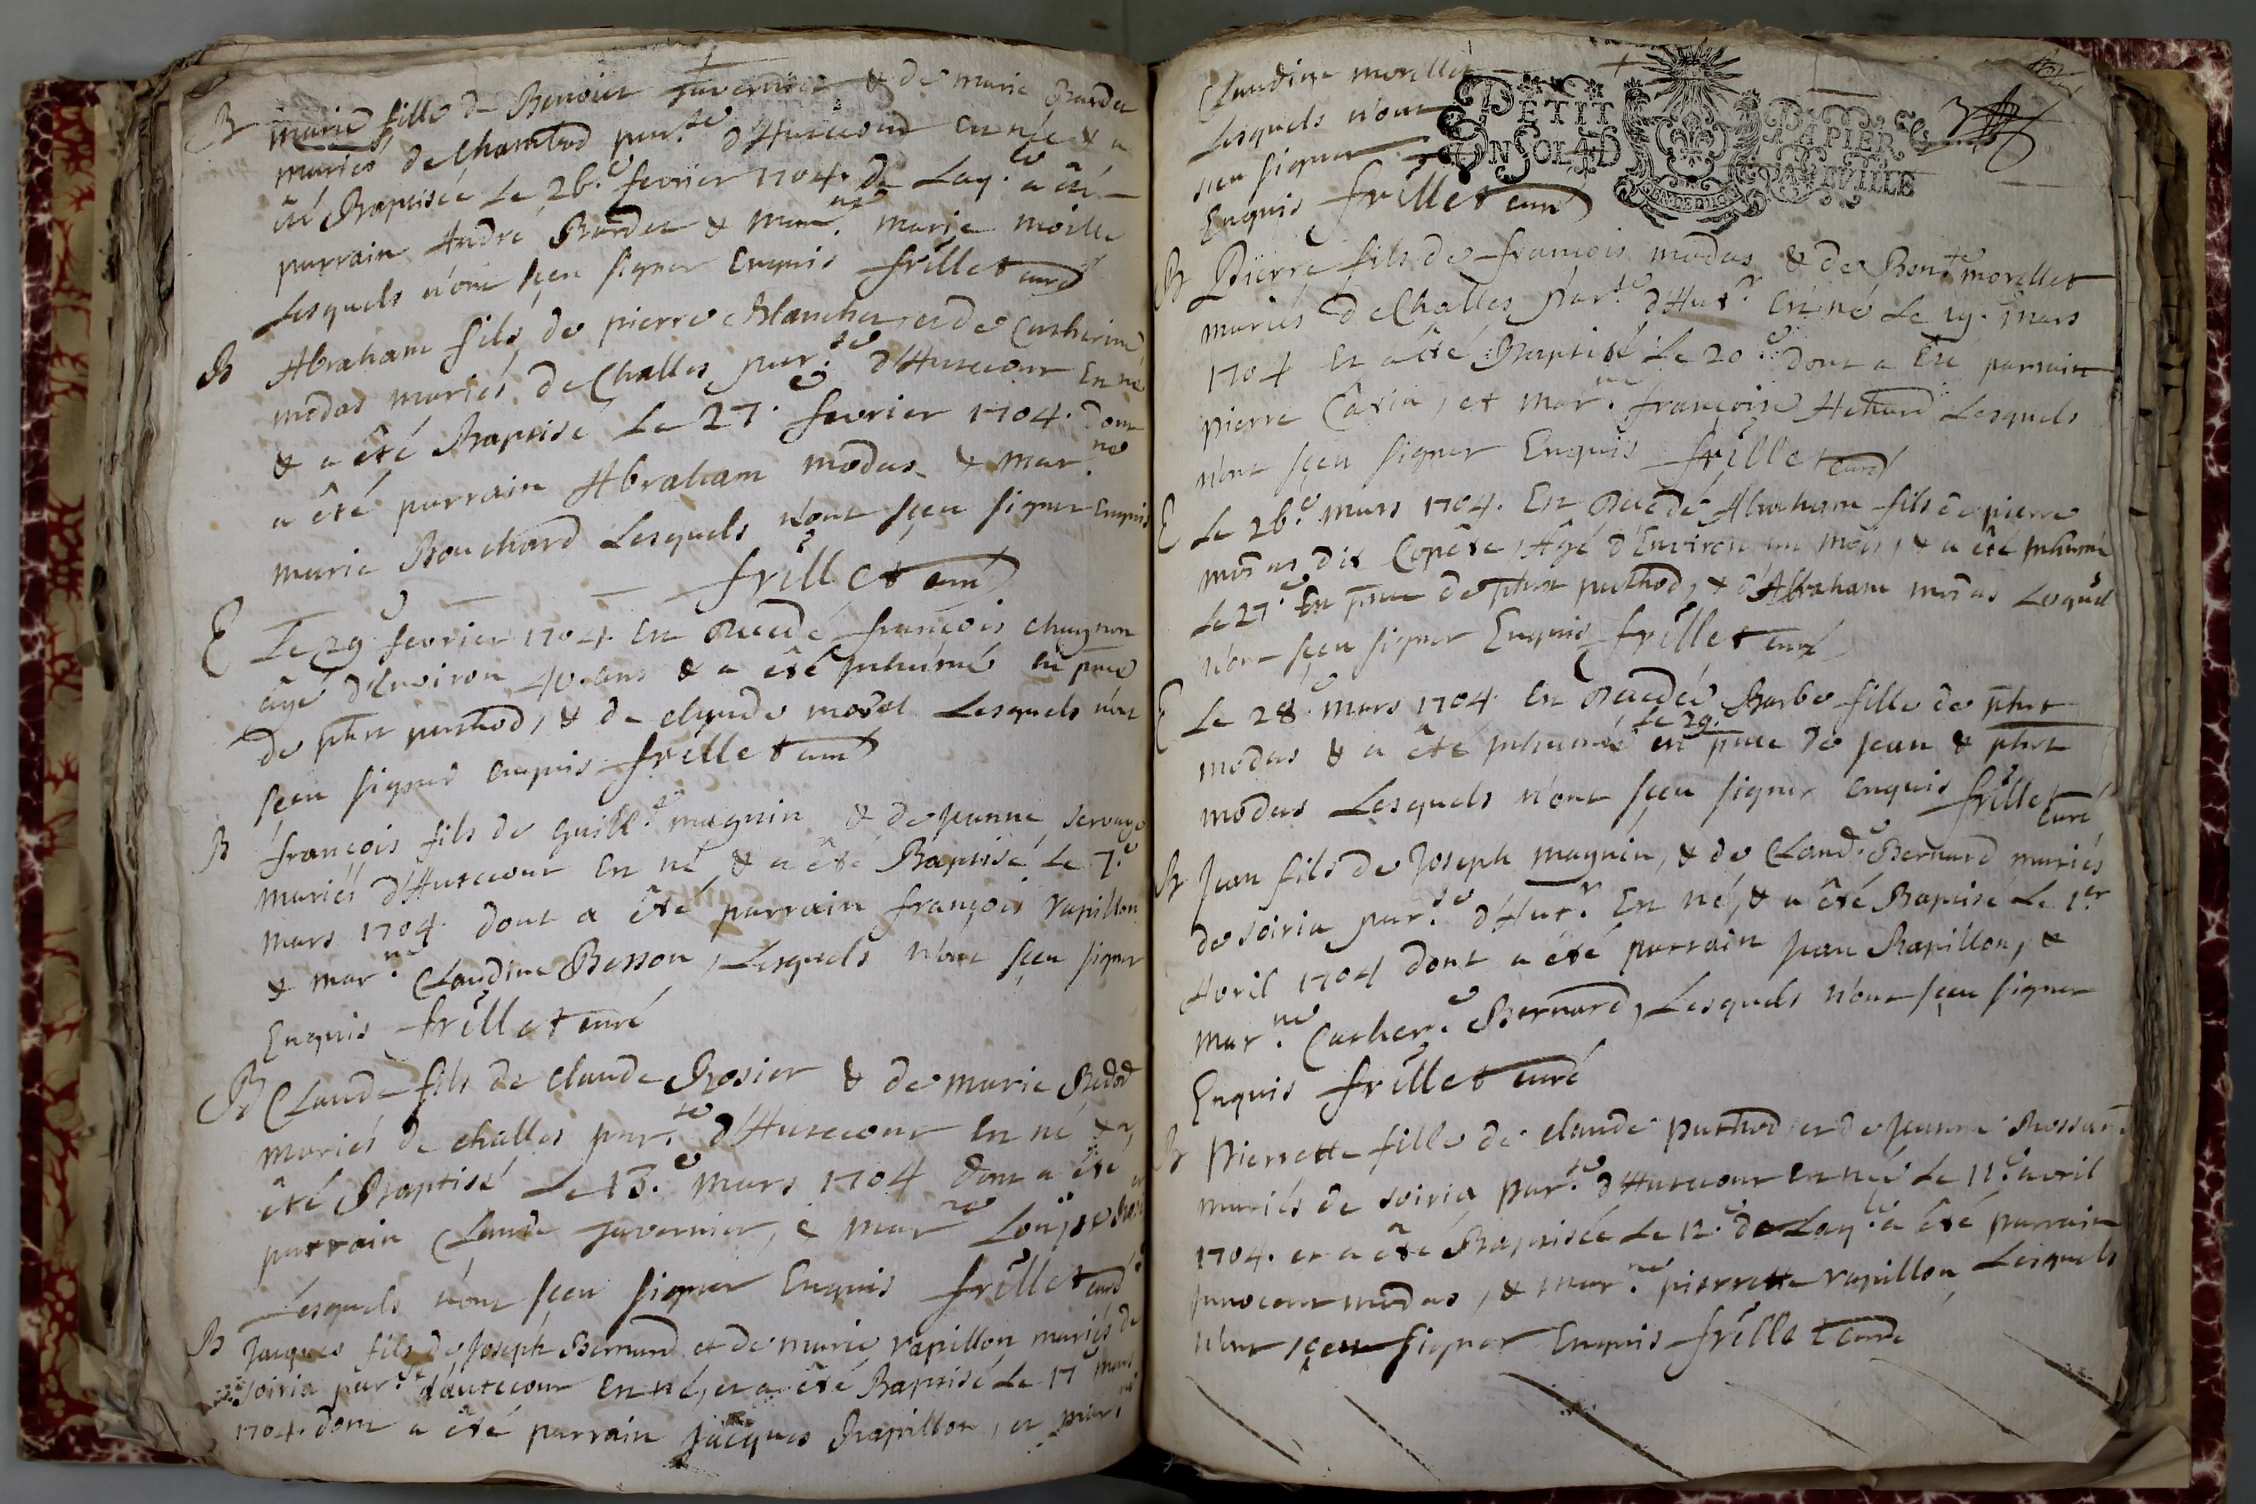 B marie fille de Benoist Tavernier & de marie Bardet
mariés de Chambod par.se d'Hautecour En née & a
êté Baptisée Le 26.e fevrier 1704. de Laq.le a êté
parrain André Bardet & mar.ne marie moille
Lesquels n'ont sçeu signer Enquis frillet curé
B Abraham fils de pierre Blanchet, et de Catherine
modas mariés de Challes par.se d'Hutecour En né
& a êté Baptisé Le 27.e fevrier 1704. Dont
a êté parrain Abraham modas & mar.ne
marie Bouchard Lesquels n'ont sçeu signer Enquis
frillet curé
E Le 29.e fevrier 1704. Est Decedé françois chagnon
âgé d'Environ 40. ans & a êté Inhumé en pnce
de phrt puthod, & de claude morel Lesquels n'ont
sçeu signer enquis frillet curé
B françois fils de Guill.e magnin & de Jeanne servage
mariés d'Hutecour En né, & a êté Baptisé Le 7.e
mars 1704. dont a êté parrain françois rapillon
& mar.ne Claudine Besson, Lesquels n'ont sçeu signer
Enquis frillet curé
B Claude fils de claude Rosier & de marie Bedod
mariés de challes par.se d'Hutecour En né & a
êté Baptisé Le 13.e mars 1704 dont a êté
parrain Claude Tavernier, & mar.ne Louise
Lesquels n'ont sçeu signer Enquis frillet curé
B Jacques fils de Joseph Bernard et de marie rapillon mariés de
soiria par.se d'autecour En né, et a êté Baptisé Le 17 mars
1704. dont a êté parrain Jacques Rapillon, et mar.ne
Claudine morellet
Lesquels n'ont
sçeu signer
Enquis frillet curé
PETIT PAPIER
UN SOL 4 D LA FEUILLE
B Pierre fils de françois modas & de Ben.te morellet
mariés de Challes Par.se d'Hut.r En né Le 19. mars
1704 Et a êté Baptisé Le 20.e dont a Eté parrain
pierre Cavia, et mar.ne françoise Hehard Lesquels
n'ont sçeu signer Enquis frillet curé
E Le 26.e mars 1704. Est Decedé Abraham fils de pierre
modas dit Copête, Agé d'Environ un mois, & a êté Inhumé
Le 27.e En pnce de phrt puthod, & d'Abraham modas Lesquels
n'ont sçeu signer Enquis frillet curé
E Le 28.e mars 1704 Est Decedée Barbe fille de phrt
modas & a êté Inhumée le 29. en pnce de Jean & phrt
modas Lesquels n'ont sçeu signer enquis frillet
curé
B Jean fils de Joseph magnin, & de Claud.e Bernard mariés
de soiria par.se d'Hut.r En né, & a êté Baptisé Le 1er
Avril 1704 dont a êté parrain Jean Rapillon, &
mar.ne Cather.e Bernard, Lesquels n'ont sçeu signer
Enquis frillet curé
B Pierrette fille de claude puthod et de Jeanne Rossand
mariés de soiria par.se d'Hutecour en née Le 11.e avril
1704. et a êté Baptisée Le 12.e de Laq.le a êté parrain
Innocent modas, & mar.ne pierrette rapillon Lesquels
n'ont sçeu signer Enquis frillet curé